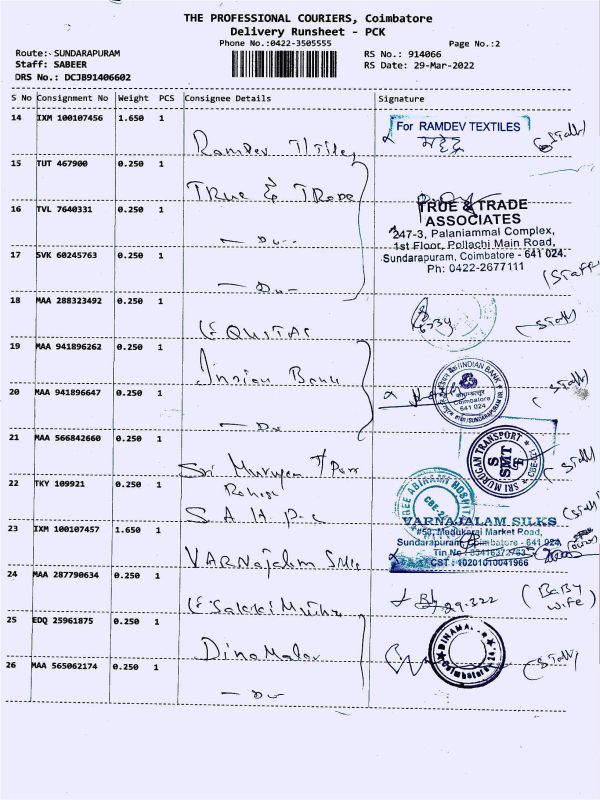 THE PROFESSIONAL COURIERS, Coimbatore
Delivery Runsheet - PCK
Phone No.:0422-3505555
Page No.:2
Route: SUNDARAPURAM
RS No.: 914066
Staff: SABEER
RS Date: 29-Mar-2022
DRS No.: DCJB91406602
S No Consignment No Weight PCS Consignee Details Signature
14 IXM 100107456 1.650 1
Ramdev
For RAMDEV TEXTILES
महेंद्र
15 TUT 467900 0.250 1
TRUE & TRADE
TRUE & TRADE
ASSOCIATES
16 TVL 7640331 0.250 1
— Do --
247-3, Palaniammal Complex,
1st Floor, Pollachi Main Road,
Sundarapuram, Coimbatore - 641 024.
Ph: 0422-2677111
17 SVK 60245763 0.250 1
— Do —
(Staff
18 MAA 288323492 0.250 1
EQUITAS
19 MAA 941896262 0.250 1
Indian Bank
INDIAN BANK
Coimbatore
641 024
20 MAA 941896647 0.250 1
— Do
21 MAA 566842660 0.250 1
Sri Murugan
SRI MURUGAN TRANSPORT
SMT
22 TKY 109921 0.250 1
S.A.H.P.C
SREE ABIRAMI HOSPITAL
23 IXM 100107457 1.650 1
VARNAJALAM SILKS
#50, Madukarai Market Road,
Sundarapuram, Coimbatore - 641 024
Tin No
CST : 10201010041966
VARNAJALAM Silks
24 MAA 287790634 0.250 1
Esakki Muthu
29.3.22
(BABY
wife)
25 EDQ 25961875 0.250 1
Dinamalar
DINAMALAR
Coimbatore
26 MAA 565062174 0.250 1
— Do